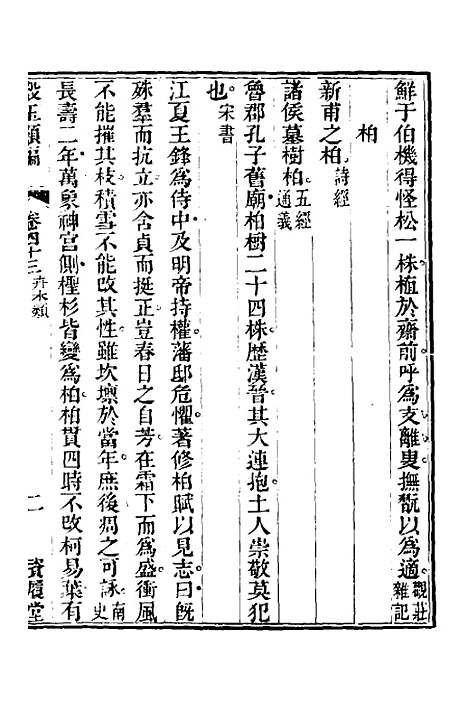 鮮于伯機得怪松一株植於齋前呼爲支離叟撫翫以爲適觀莊雜記
柏
新甫之柏詩經
諸侯墓樹柏五經通義
魯郡孔子舊廟柏樹二十四株歷漢晉其大連抱土人崇敬莫犯
也宋書
江夏王鋒爲侍中及明帝持權藩邸危懼著修柏賦以見志曰旣
殊羣而抗立亦含貞而挺正豈春日之自芳在霜下而爲盛衝風
不能摧其枝積雪不能改其性雖坎壞於當年庶後凋之可詠南史
長壽二年萬象神宮側檉杉皆變爲柏柏貫四時不改柯易葉有
類編 卷四十三 卉木類 二 履堂